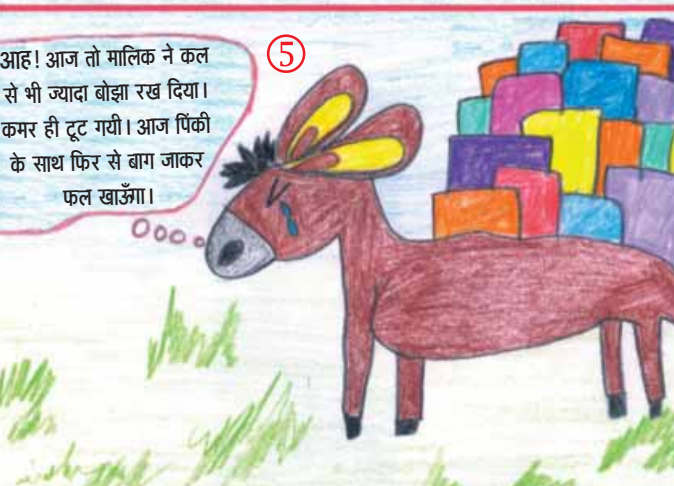 ⑤
आह! आज तो मालिक ने कल
से भी ज्यादा बोझा रख दिया।
कमर ही टूट गयी। आज पिंकी
के साथ फिर से बाग जाकर
फल खाऊँगा।